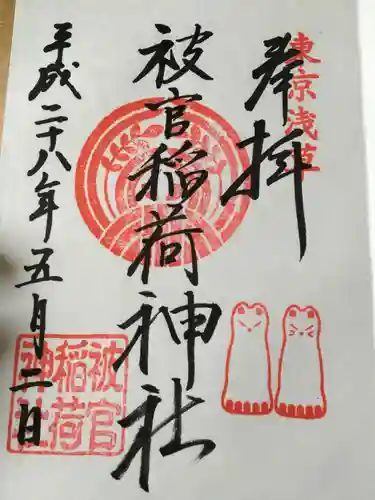 東京浅草
奉拝
被官稲荷神社
平成二十八年五月二日
被官
稲荷
神社